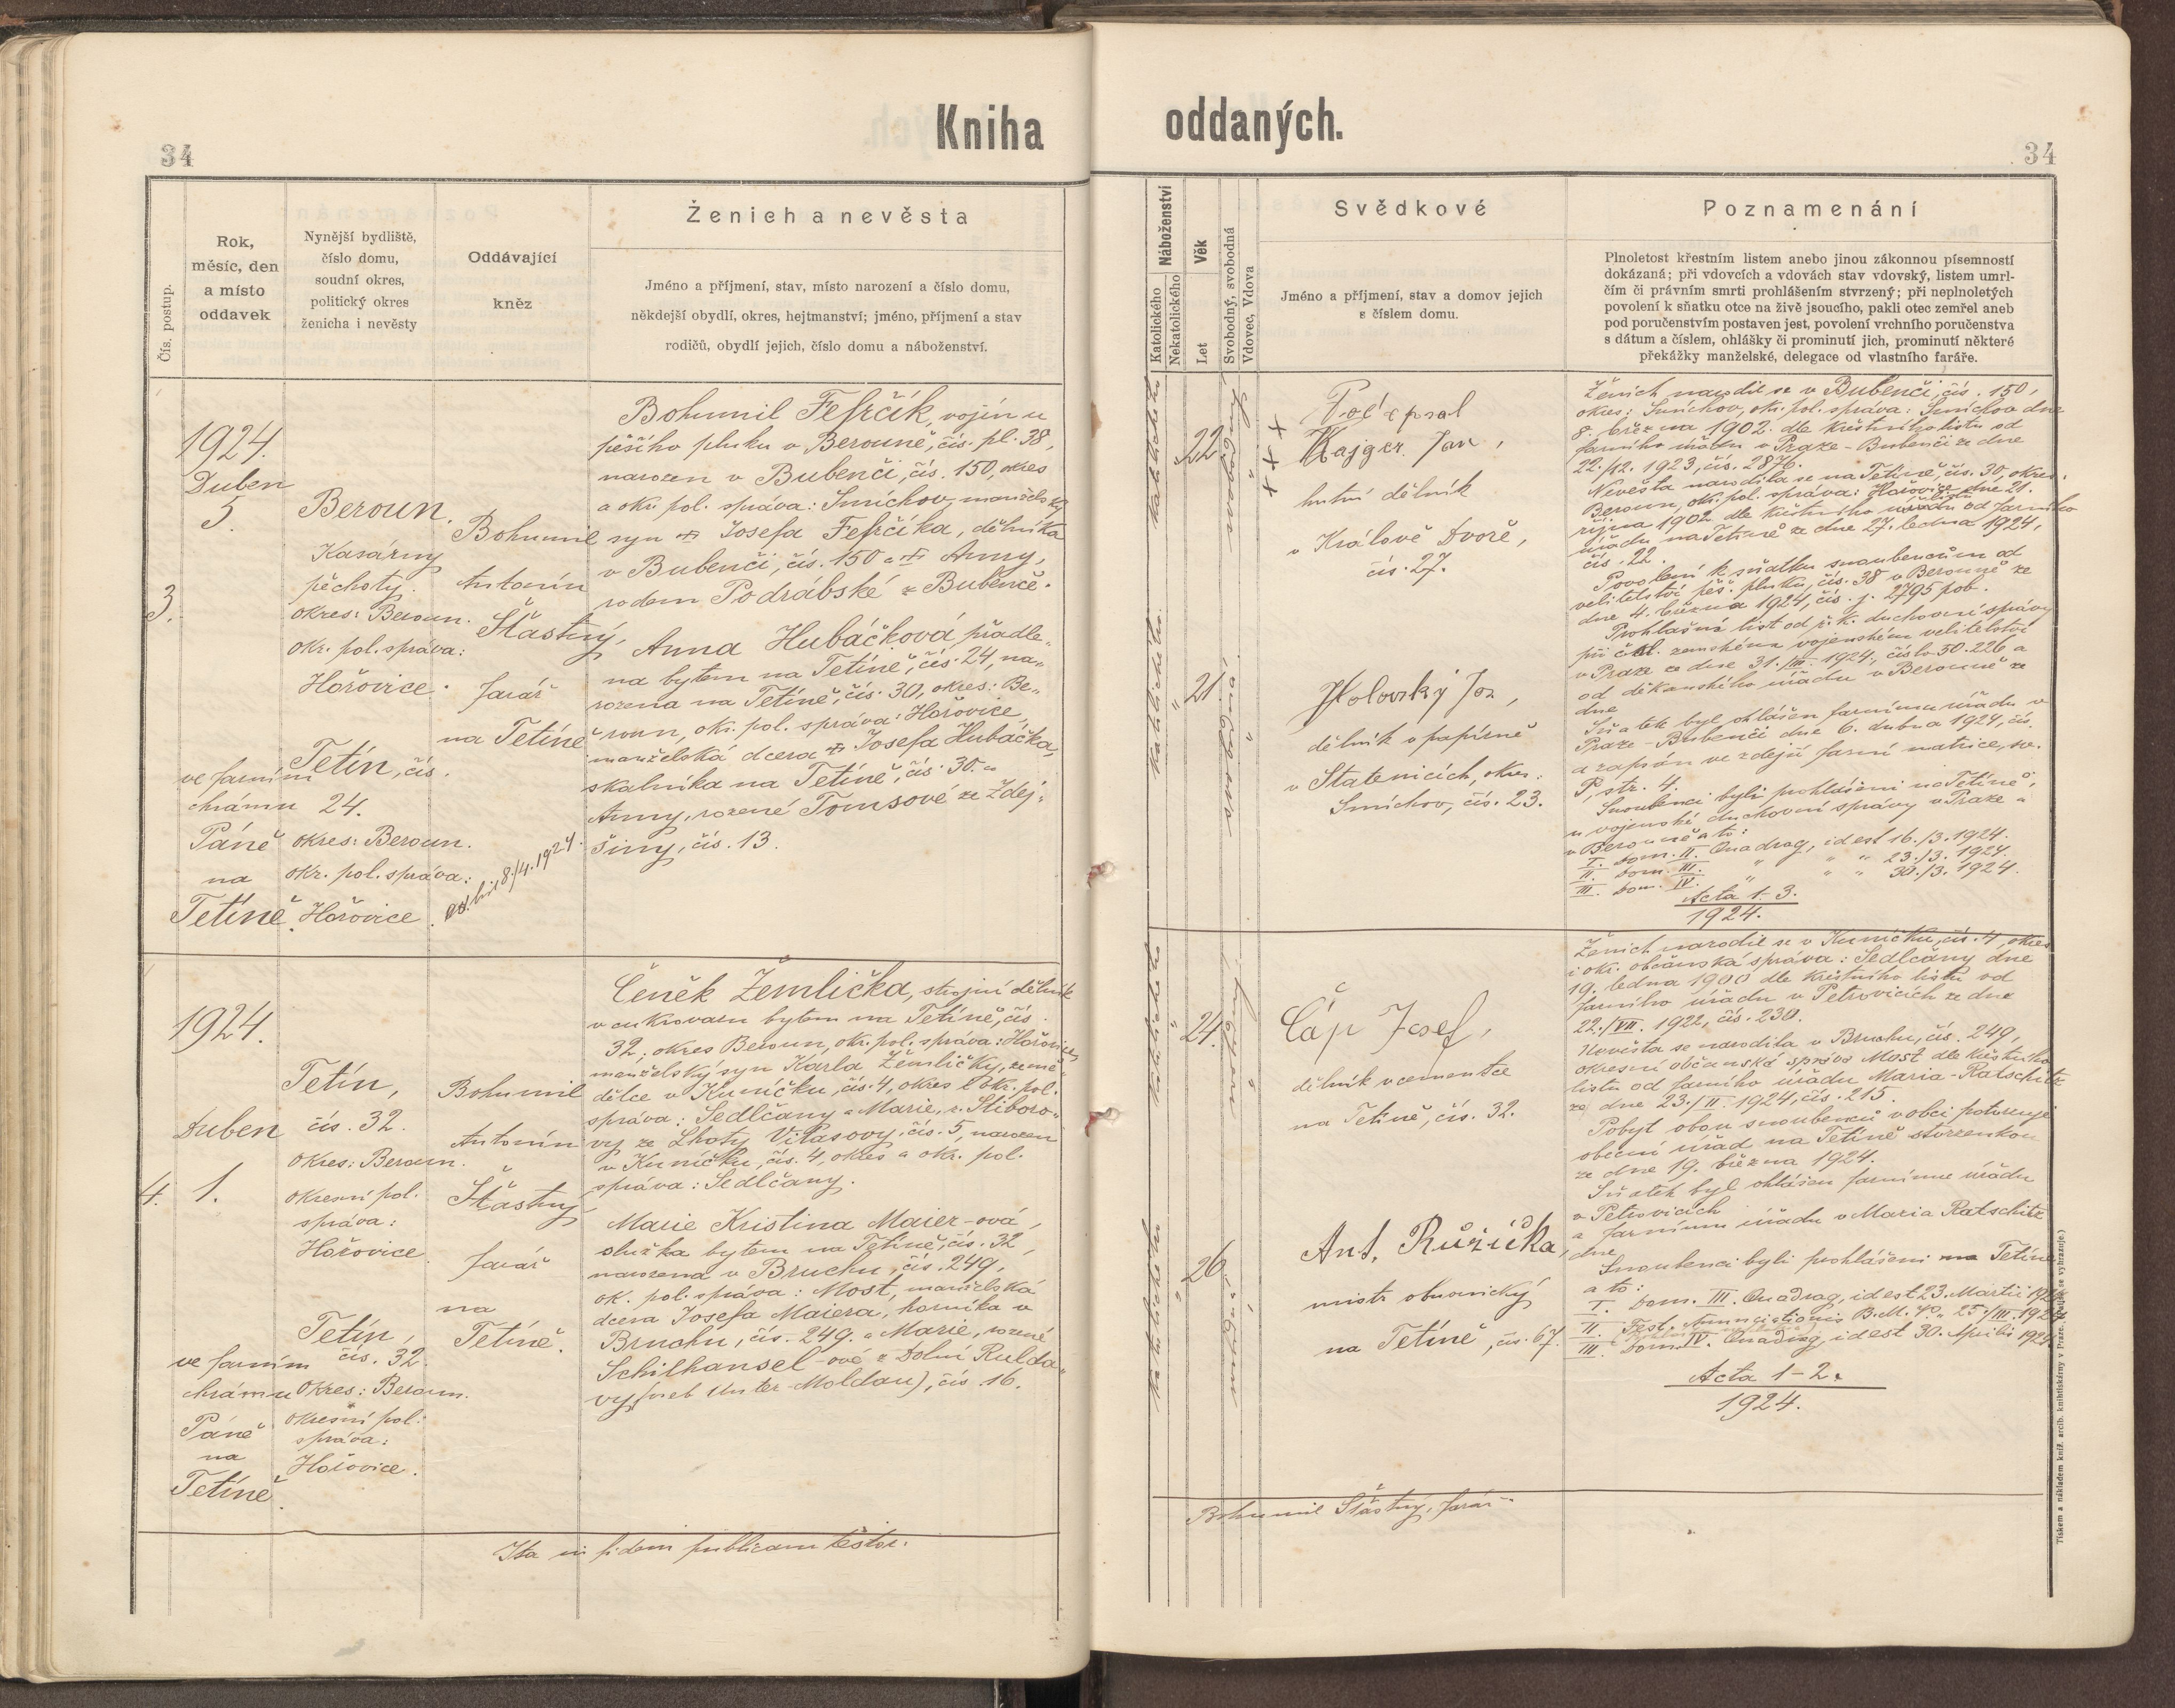 Kniha oddaných.
34
34
Čís. postup.
Rok,
měsíc, den
a místo
oddavek
Nynější bydliště,
číslo domu,
soudní okres,
politický okres
ženicha i nevěsty
Oddávající
kněz
Ženich a nevěsta
Jméno a příjmení, stav, místo narození a číslo domu,
někdejší obydlí, okres, hejtmanství; jméno, příjmení a stav
rodičů, obydlí jejich, číslo domu a náboženství.
Náboženství
Katolického
Nekatolického
Věk
Let
Svobodný, svobodná
Vdovec, Vdova
Svědkové
Jméno a příjmení, stav a domov jejich
s číslem domu.
Poznamenání
Plnoletost křestním listem anebo jinou zákonnou písemností
dokázaná; při vdovcích a vdovách stav vdovský, listem umrl-
čím či právním smrti prohlášením stvrzený; při neplnoletých
povolení k sňatku otce na živě jsoucího, pakli otec zemřel aneb
pod poručenstvím postaven jest, povolení vrchního poručenstva
s dátum a číslem, ohlášky či prominutí jich, prominutí některé
překážky manželské, delegace od vlastního faráře.
3.
1924.
Duben
5.
ve farním
chrámu
Páně
na
Tetíně.
Beroun.
Kasárny
pěchoty.
okres: Beroun.
okr. pol. správa:
Hořovice.
Tetín, čís.
24.
okres: Beroun.
okr. pol. správa:
Hořovice.
Bohumil
Antonín
Šťastný,
farář
na Tetíně
8./4. 1924.
Bohumil Fefrčík, vojín u
pěšího pluku v Berouně, čís. pl. 38,
narozen v Bubenči, čís. 150, okres
a okr. pol. správa: Smíchov, manželský
syn Josefa Fefrčíka, dělníka
v Bubenči, čís. 150 a Anny,
rodem Podrábské z Bubenče.
Anna Hubáčková, přadle„
na bytem na Tetíně, čís. 24, na„
rozena na Tetíně, čís. 30, okres: Be„
roun, okr. pol. správa: Hořovice,
manželská dcera Josefa Hubáčka,
skalníka na Tetíně, čís. 30. a
Anny, rozené Tomsové ze Zdej„
činy, čís. 13.
katolického
22.
+ + +
Podepsal
Kajger Jan,
hutní dělník
v Králově Dvoře,
čís. 27.
katolického
21.
Holovský Jos,
dělník v papírně
v Statenicích, okres:
Smíchov, čís. 23.
Ženich narodil se v Bubenči, čís. 150,
okres: Smíchov, okr. pol. správa: Smíchov dne
8. března 1902. dle křestního listu od
farního úřadu v Praze - Bubenči ze dne
22./12. 1923, čís. 2876.
Nevěsta narodila se na Tetíně, čís. 30, okres:
Beroun, okr. pol. správa: Hořovice dne 21.
října 1902 dle křestního listu od farního
úřadu na Tetíně ze dne 27. ledna 1924,
čís. 22.
Povolení k sňatku snoubencům od
velitelství pěš. pluku, čís. 38 v Berouně ze
dne 4. března 1924, čís. j. 2795 pob.
Prohlašná list od ř. k. duchovní správy
při čsl. zemském vojenském velitelství
v Praze ze dne 31./III. 1924, číslo 50.226 a
od děkanského úřadu v Berouně ze
dne
Sňatek byl ohlášen farnímu úřadu v
Praze - Bubenči dne 6. dubna 1924, čís.
a zapsán ve zdejší farní matrice, sv.
P, str. 4.
Snoubenci byli prohlášeni na Tetíně,
u vojenské duchovní správy v Praze a
v Berouně a to:
I. Dom. II. Quadrag, id est 16./3. 1924.
II. Dom. III. „ „ „ 23./3. 1924.
III. Dom. IV. „ „ „ 30./3. 1924.
Acta 1-3.
1924.
4.
1924.
Duben
1.
ve farním
chrámu
Páně
na
Tetíně.
Tetín,
čís. 32.
okres: Beroun.
okresní pol.
správa:
Hořovice.
Tetín,
čís. 32.
okres: Beroun.
okresní pol.
správa:
Hořovice.
Bohumil
Antonín
Šťastný
farář
na
Tetíně.
Čeněk Žemlička, strojní dělník
v cukrovaru bytem na Tetíně, čís.
32, okres Beroun, okr. pol. správa: Hořovice,
manželský syn Karla Žemličky, země„
dělce v Kuníčku, čís. 4, okres i okr. pol.
správa: Sedlčany a Marie, r. Stiboro„
vy ze Lhoty Vitasovy, čís. 5, narozen
v Kuníčku, čís. 4, okres a okr. pol.
správa: Sedlčany.
Marie Kristina Maier-ová,
služka bytem na Tetíně, čís. 32,
narozena v Bruchu, čís. 249,
ok. pol. správa: Most, manželská
dcera Josefa Maiera, horníka v
Bruchu, čís. 249. a Marie, rozené
Schilhansel-ové z Dolní Rulda„
vy, (Unter-Moldau), čís. 16.
katolického
24.
Čáp Josef,
dělník v cementce
na Tetíně, čís. 32.
katolického
26.
Ant. Růžička,
mistr obuvnický
na Tetíně, čís. 67.
Ženich narodil se v Kuníčku, čís. 4, okres
i okr. občanská správa: Sedlčany dne
19. ledna 1900 dle křestního listu od
farního úřadu v Petrovicích ze dne
22./VII. 1922, čís. 230.
Nevěsta se narodila v Bruchu, čís. 249,
okresní občanská správa Most dle křestního
listu od farního úřadu Maria-Ratschitz
ze dne 23./II. 1924, čís. 215.
Pobyt obou snoubenců v obci potvrzuje
obecní úřad na Tetíně stvrzenkou
ze dne 19. března 1924.
Sňatek byl ohlášen farnímu úřadu
v Petrovicích
a farnímu úřadu v Maria Ratschitz
dne
Snoubenci byli prohlášeni na Tetíně
a to:
I. Dom. III. Quadrag, id est 23. Martii 1924.
II. Fest. Annunciationis B. M. V. 25./III. 1924.
III. Dom. IV. Quadrag, id est 30. 1924.
Acta 1-2.
1924.
Ita in fidem publicam testor.
Bohumil Šťastný, farář.